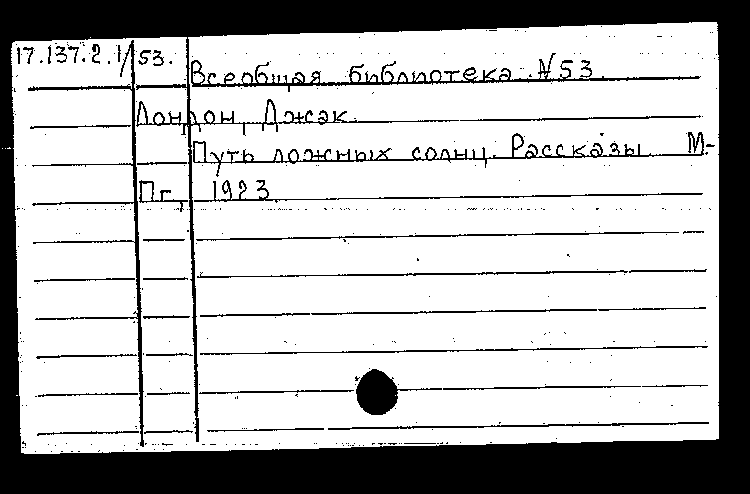 17.137.2.1/53.
Всеобщая библиотека N53
Лондон, Джэк.
Путь ложных солнц. Рассказы М-
Пг, 1923